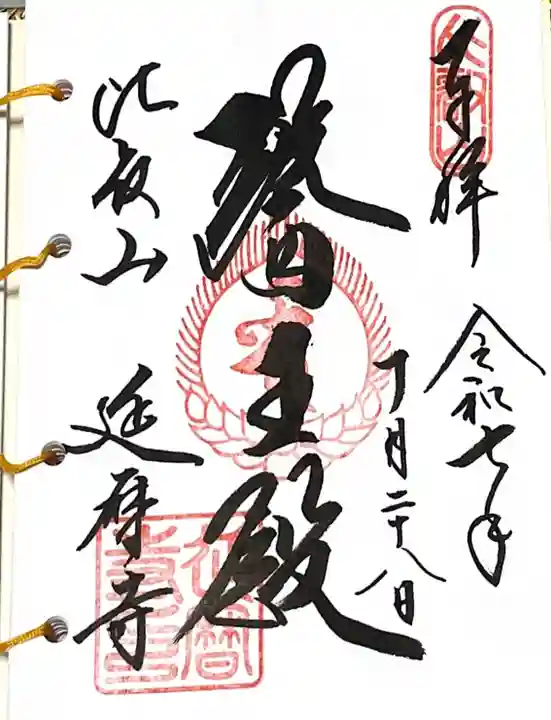 奉拝
令和七年
月二十八日
醫王殿
比叡山
延暦寺